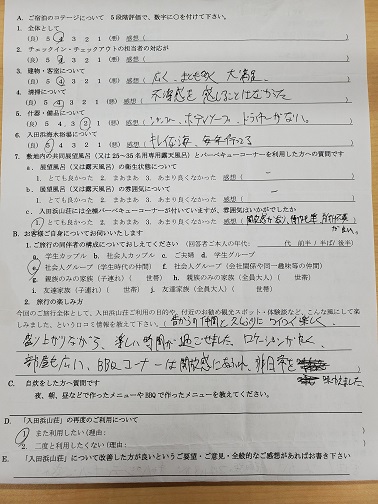 A. ご宿泊のコテージについて 5段階評価で、数字に○を付けて下さい。
1. 全体として
(良) 5 4 3 2 1 (悪) 感想 ( )
2. チェックイン・チェックアウトの担当者の対応が
(良) 5 4 3 2 1 (悪) 感想 ( )
3. 建物・客室について
(良) 5 4 3 2 1 (悪) 感想 ( 広く、 大満足。 )
4. 清掃について
(良) 5 4 3 2 1 (悪) 感想 ( 不潔感を感じることはなかった )
5. 什器・備品について
(良) 5 4 3 2 1 (悪) 感想 ( シャンプー、ボディソープ、ドライヤーがない。 )
6. 入田浜海水浴場について
(良) 5 4 3 2 1 (悪) 感想 ( キレイな海、毎年行ってる )
7. 敷地内の共同展望風呂(又は25~35名用専用露天風呂)とバーベキューコーナーを利用した方への質問です
a. 展望風呂(又は露天風呂)の衛生状態について
1. とても良かった 2. まあまあ 3. あまり良くなかった 感想( - )
b. 展望風呂(又は露天風呂)の雰囲気について
1. とても良かった 2. まあまあ 3. あまり良くなかった 感想( - )
c. 入田浜山荘には全棟バーベキューコーナーが付いていますが、雰囲気はいかがでしたか
1. とても良かった 2. まあまあ 3. あまり良くなかった 感想( 開放感があり、 )
が良い。
B. お客様ご自身についてお伺いいたします
1. ご旅行の同伴者の構成についておしえてください (回答者ご本人の年代: 代 前半/半ば/後半)
a. 学生カップル b. 社会人カップル c. ご夫婦 d. 学生グループ
e. 社会人グループ(学生時代の仲間) f. 社会人グループ(会社関係や同一趣味等の仲間)
g. 親族のみの家族(子連れ)( 世帯) h. 親族のみの家族(全員大人)( 世帯)
i. 友達家族(子連れ)( 世帯) j. 友達家族(全員大人)( 世帯)
2. 旅行の楽しみ方
今回のご旅行全体として、入田浜山荘ご利用の目的や、付近のお勧め観光スポット・体験談など、こんな風にして楽
しみました、という口コミ情報を教えて下さい( 昔からの仲間と久しぶりにワイワイ楽しく、
盛り上がりながら、楽しい時間が過ごせました。ロケーションが良く、
部屋も広い、BBQコーナーは開放感にあふれ、非日常を
味わえました。
C. 自炊をした方へ質問です
夜、朝、昼などで作ったメニューやBBQで作ったメニューを教えてください。
D. 「入田浜山荘」の再度のご利用について
1. また利用したい(理由: )
2. 二度と利用したくない(理由: )
E. 「入田浜山荘」について改善した方が良いというご要望・ご意見・全般的なご感想があればお書き下さい